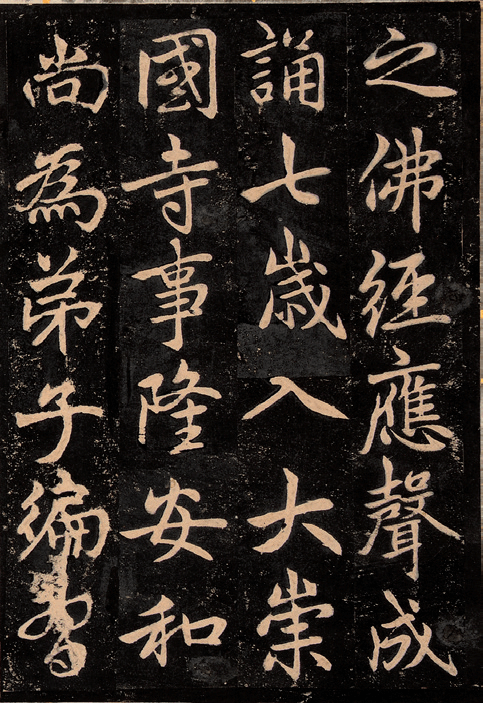 之佛經應聲成
誦七歲入大崇
國寺事隆安和
尚為弟子編習